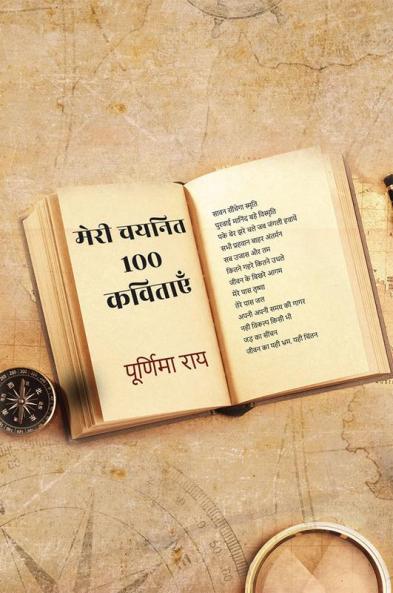 मेरी चयनित
100
कविताएँ
पूर्णिमा राय
सावन सींचेगा स्मृति
पुरवाई मानिंद बहे विस्मृति
पके बेर झरे चले जब जंगली हवायें
सभी प्रहवान बाहर अंतर्मन
सब उजास और तम
कितने गहरे कितने उथले
जीवन के बिखरे आगम
मेरे पास तृष्णा
तेरे पास जल
अपनी अपनी समय की गागर
नही विकल्प किसी भी
जड़ का सींचन
जीवन का यही भ्रम, यही चिंतन